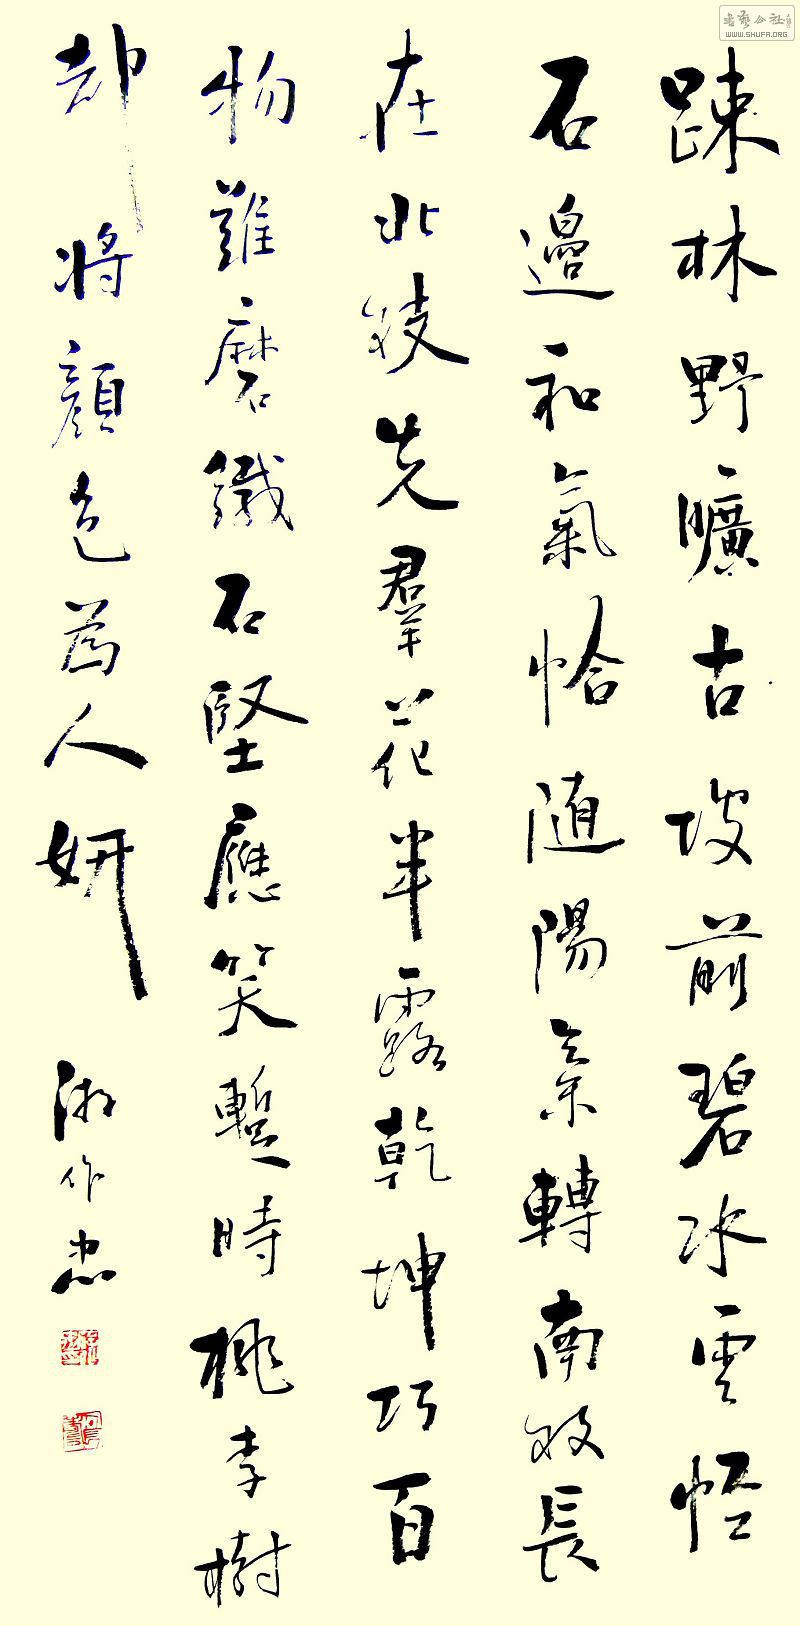 踈林野曠古坡前碧冰雲恠
石邊和氣恰随陽氣轉南枝長
在北枝先羣花半露乾坤巧百
物難磨鐵石堅應笑暫時桃李樹
却將顏色為人妍
作忠
書藝公社
WWW.SHUFA.ORG